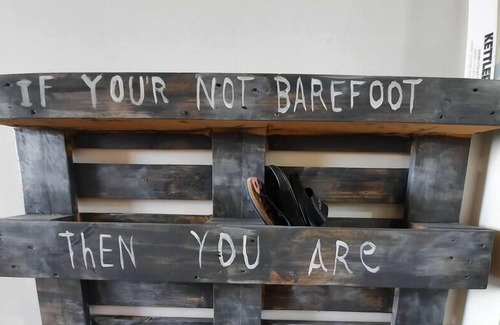 IF YOU'R NOT BAREFOOT
THEN YOU ARe
KETTLER